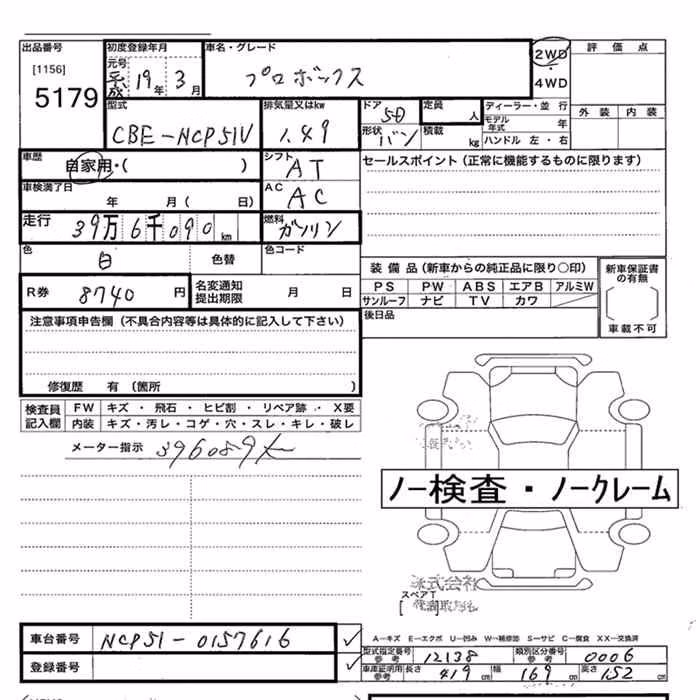 出品番号 初度登録年月 車名・グレード 2WD・4WD 評価点
[1156]
5179
元号 平成 19年 3月 プロボックス
型式 排気量又はkw ドア 5D 定員 人 ディーラー・並行 外装 内装
CBE-NCP51V 1.49 形状 バン 積載 kg モデル年式 年 ハンドル 左・右
車歴 自家用・( ) シフト AT セールスポイント（正常に機能するものに限ります）
車検満了日 年 月( 日) AC AC
走行 39万6千090km 燃料 ガソリン
色 白 色替 色コード
R券 8740 円 名変通知提出期限 月 日
装備品（新車からの純正品に限り○印） 新車保証書の有無
PS PW ABS エアB アルミW
サンルーフ ナビ TV カワ 車載不可
後日品
注意事項申告欄（不具合内容等は具体的に記入して下さい）
修復歴 有（箇所 ）
検査員記入欄 FW キズ・飛石・ヒビ割・リペア跡・X要
内装 キズ・汚レ・コゲ・穴・スレ・キレ・破レ
メーター指示 396089
ノー検査・ノークレーム
スペアT
[ ]
車台番号 NCP51-0157616
登録番号
A―キズ E―エクボ U―凹み W―補修跡 S―サビ C―腐食 XX―交換済
型式指定番号 参考 12138 類別区分番号 参考 0006
車庫証明用 参考 長さ 419cm 幅 169cm 高さ 152cm